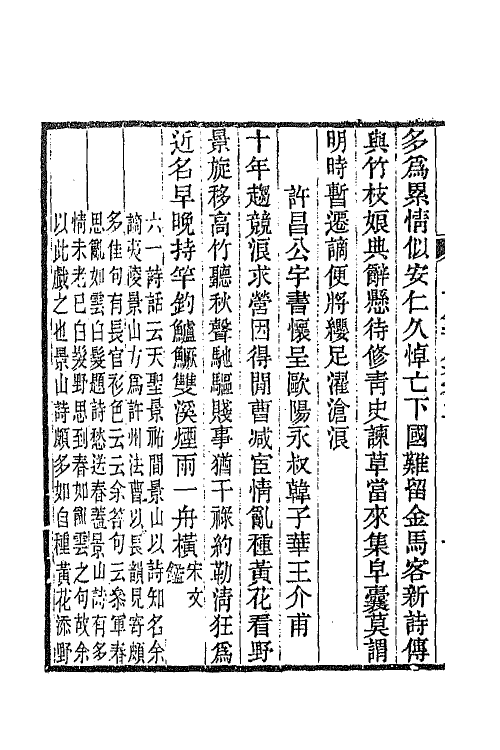 多爲累情似安仁久悼亡下國難留金馬客新詩傳
與竹枝娘典辭懸待修靑史諫草當來集皁囊莫謂
明時暫遷謫便將纓足濯滄浪
許昌公宇書懷呈歐陽永叔韓子華王介甫
十年趨競浪求營因得閒曹減宦情亂種黃花看野
景旋移高竹聽秋聲馳驅賤事猶干祿約勒淸狂爲
近名早晚持竿釣鱸鱖雙溪煙雨一舟橫宋文鑑
六一詩話云天聖景祐間景山以詩知名余
謫夷陵景山方爲許州法曹以長韻見寄頗
多佳句有長官衫色云云余答句云參軍春
思亂如雲白髮題詩愁送春蓋景山詩有多
情未老已白髮野思到春如亂雲之句故余
以此戲之也景山詩頗多如自種黃花添野